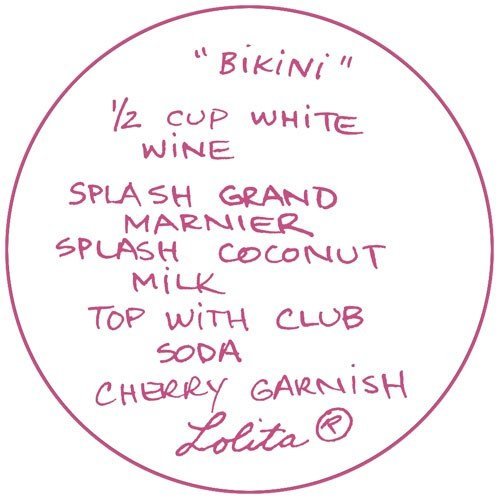 "BiKiNi"
1/2 CUP WHITE
WINE
SPLASH GRAND
MARNIER
SPLASH COCONUT
MILK
TOP WITH CLUB
SODA
CHERRY GARNISH
Lolita ®